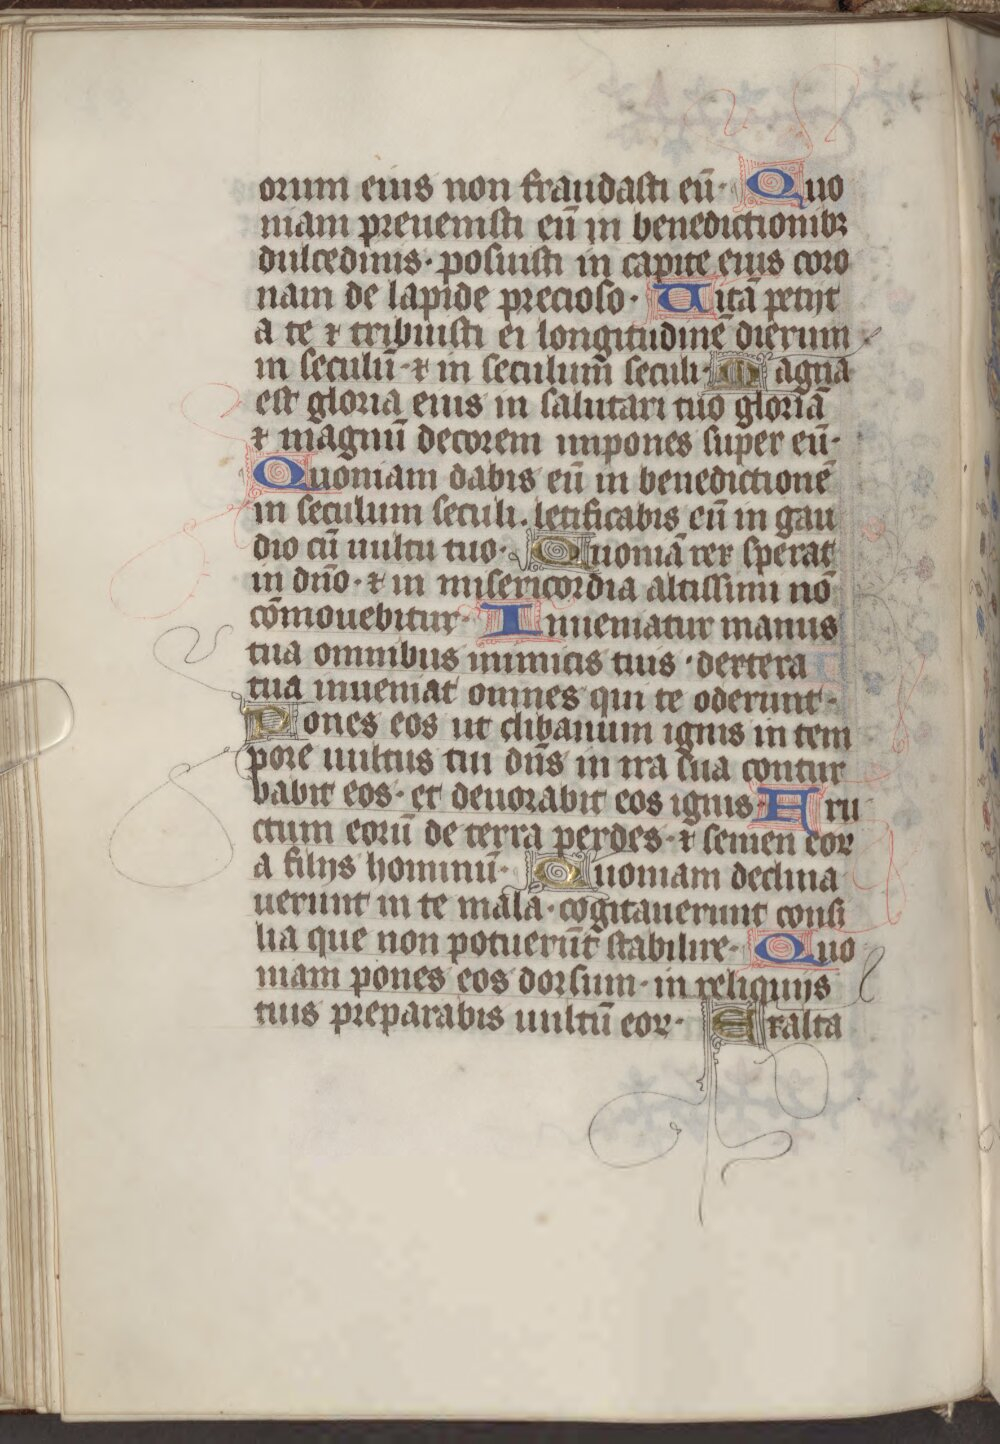 orum eius non fraudasti eū· Quo
niam preuenisti eū in benedictionibꝫ
dulcedinis· posuisti in capite eius coro
nam de lapide precioso· Uitā petijt
a te ⁊ tribuisti ei longitudinē dierum
in seculū· ⁊ in seculum̄ seculi· Magna
est gloria eius in salutari tuo gloriā
⁊ magnū decorem impones super eū·
Quoniam dabis eū in benedictionē
in seculum seculi. letificabis eū in gau
dio cū uultu tuo· Quoniā rex sperat
in dn̄o· ⁊ in misericordia altissimi nō
cōmouebitur· Inueniatur manus
tua omnibus inimicis tuis · dextera
tua inueniat omnes qui te oderunt·
Pones eos ut clibanum ignis in tem
pore uultus tui dn̄s in ira sua contur
babit eos· et deuorabit eos ignis· Fru
ctum eorū de terra perdes· ⁊ semen eoꝝ
a filijs hominū· Quoniam declina
uerunt in te mala· cogitauerunt consi
lia que non potuerūt stabilire· Quo
niam pones eos dorsum· in reliquijs
tuis preparabis uultū eoꝝ· Exalta